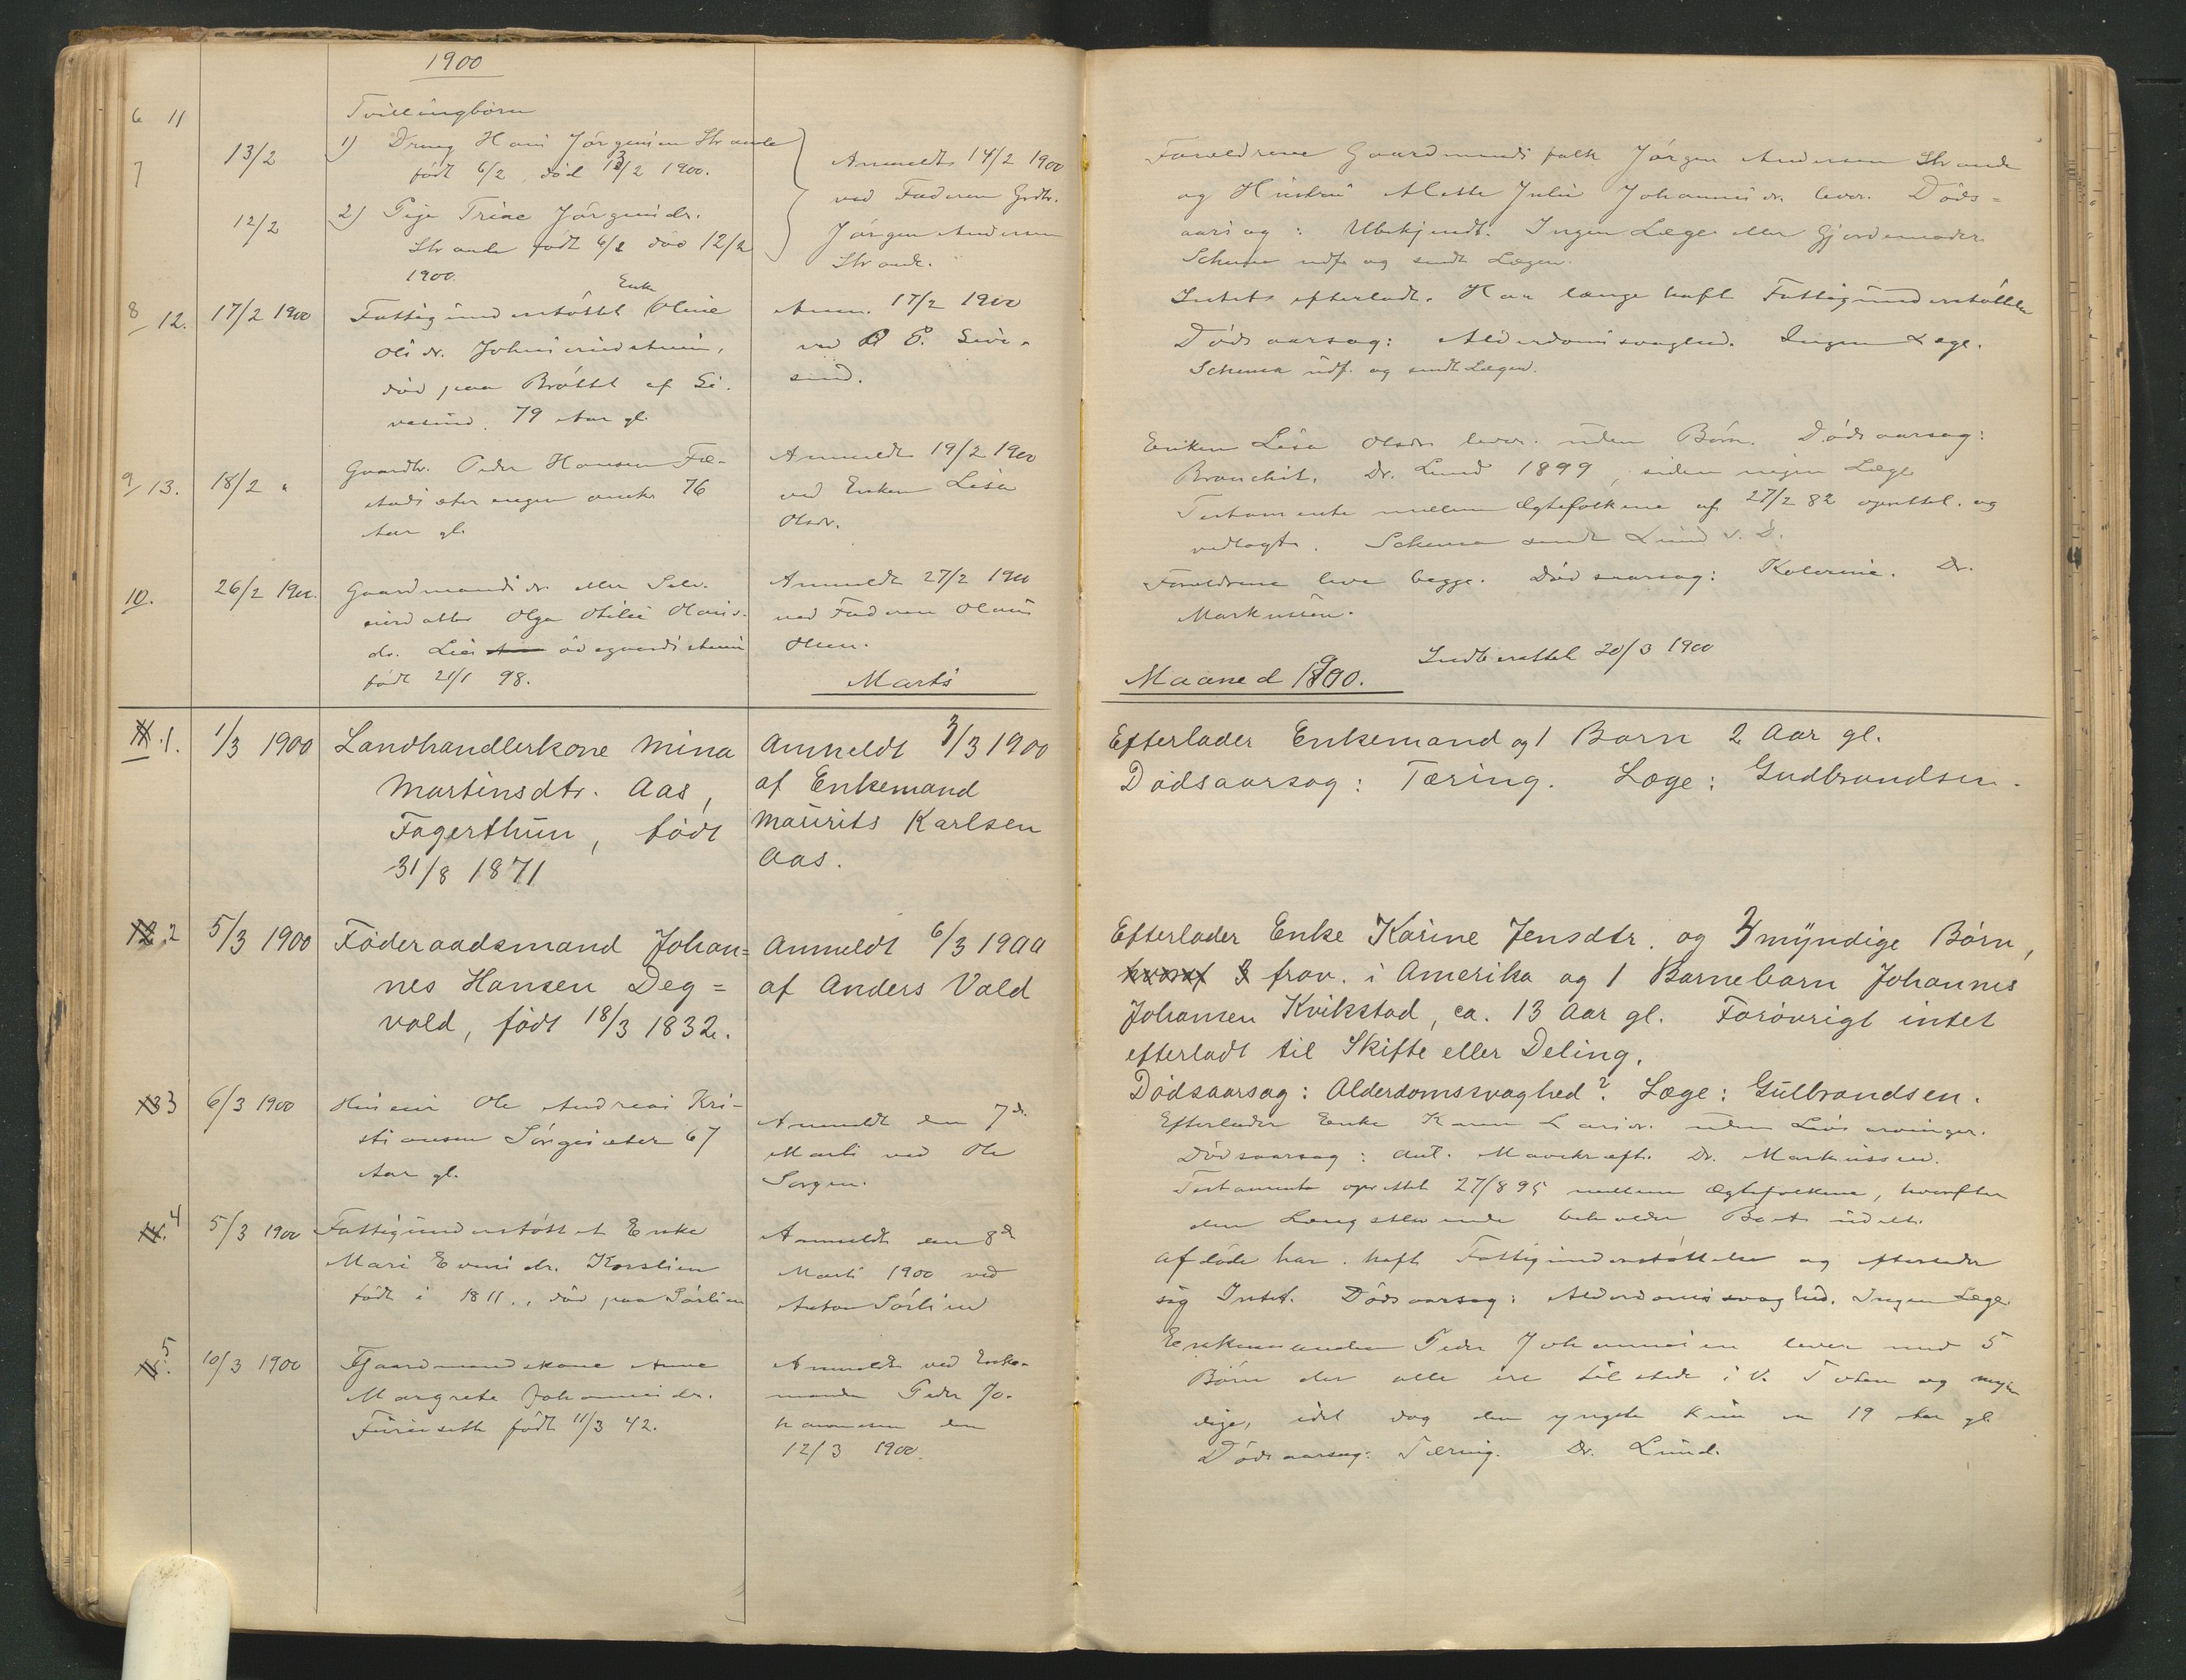 1900
6 11
7
Tvillingbørn
13/2
1) Dreng Hans Jørgensen Strande
født 6/2, død 13/2 1900.
12/2
2) Pige Trine Jørgensdr.
Strande født 6/2 død 12/2
1900.
Anmeldt 14/2 1900
ved Faderen Grdbr.
Jørgen Andersen
Strande.
8/12. 17/2 1900
Enke
Fattigunderstøttet Oline
Olsdr. Johnsrudstuen,
død paa Brøttet af Si-
vesind. 79 Aar gl.
Anm. 17/2 1900
ved P. Sive-
sind.
9/13. 18/2 "
Gaardbr. Peder Hansen Fæ-
stadsæterengen omkr. 76
Aar gl.
Anmeldt 19/2 1900
ved Enken Lisa
Olsdr.
10. 26/2 1900.
Gaardmandsdr. eller Selv-
eierdatter Olga Otilie Olaus-
dr. Lier ødegaardstuen
født 21/1 98.
Anmeldt 27/2 1900
ved Faderen Olaus
Olsen.
Marts
11.1. 1/3 1900
Landhandlerkone Mina
Martinsdtr. Aas,
Fagerthun, født
31/8 1871
Anmeldt 3/3 1900
af Enkemand
Maurits Karlsen
Aas.
12.2 5/3 1900
Føderaadsmand Johan=
nes Hansen Deg=
vold, født 18/3 1832.
Anmeldt 6/3 1900
af Anders Vold
13 3 6/3 1900
Husmd. Ole Andreas Kri-
stiansen Sørgesæter 67
Aar gl.
Anmeldt den 7de
Marts ved Ole
Sorgen.
14. 4 5/3 1900
Fattigunderstøttet Enke
Mari Evensdr. Korslien
født i 1811., død paa Sørlien
Anmeldt den 8de
Marts 1900 ved
Anton Sørlien
15. 5 10/3 1900
Gaardmandskone Anne
Margrete Johannesdr.
Furuseth født 11/3 42.
Anmeldt ved Enke-
manden Peder Jo-
hannesen den
12/3 1900.
Forældrene Gaardmandsfolk Jørgen Andersen Strande
og Hustru Alette Julie Johannesdr. lever. Døds=
aarsag: Ubekjendt. Ingen Læge eller Gjordemoder
Schema udf. og sendt Lægen.
Intet efterladt. Har længe haft Fattigunderstøttelse
Dødsaarsag: Alderdomssvaghed. Ingen Læge.
Schema udf. og sendt Lægen.
Enken Lisa Olsdr. lever. uden Børn. Dødsaarsag:
Bronchit, Dr. Lund 1899, siden ingen Læge
Testamente mellem Ægtefolkene af 27/2 82 oprettet. og
vedlagt. Schema sendt Lund s. D.
Forældrene leve begge. Dødsaarsag: Kolerine. Dr.
Markussen.
Maaned 1900.
Indberettet 20/3 1900
Efterlader Enkemand og 1 Barn 2 Aar gl.
Dødsaarsag: Tæring. Læge: Gudbrandsen.
Efterlader Enke Karine Jensdtr. og 3 myndige Børn,
hvoraf 2 frav. i Amerika og 1 Barnebarn Johannes
Johansen Kvikstad, ca. 13 Aar gl. Forøvrigt intet
efterladt til Skifte eller Deling.
Dødsaarsag: Alderdomssvaghed? Læge: Gulbrandsen.
Efterlader Enke Karen Larsdr. uden Livsarvinger.
Dødsaarsag: ant. Mavekræft. Dr. Markussen.
Testamente oprettet 27/8 95 mellem Ægtefolkene, hvorefter
den Længstlevende beholder Boet udelt.
Afdøde har haft Fattigunderstøttelse og efterlader
sig Intet. Dødsaarsag: Alderdomssvaghed. Ingen Læge.
Enkemanden Peder Johannesen lever med 5
Børn der alle ere tilstede i V. Toten og myn-
dige, idet dog den yngste kun er 19 Aar gl.
Dødsaarsag: Tæring. Dr. Lund.